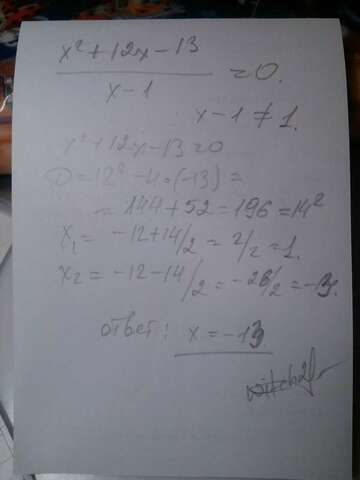 x² + 12x - 13
x - 1
= 0.
x - 1 ≠ 1.
x² + 12x - 13 = 0
D = 12² - 4 · (-13) =
= 144 + 52 = 196 = 14²
x₁ = -12+14/2 = 2/2 = 1.
x₂ = -12-14/2 = -26/2 = -13.
ответ: x = -13